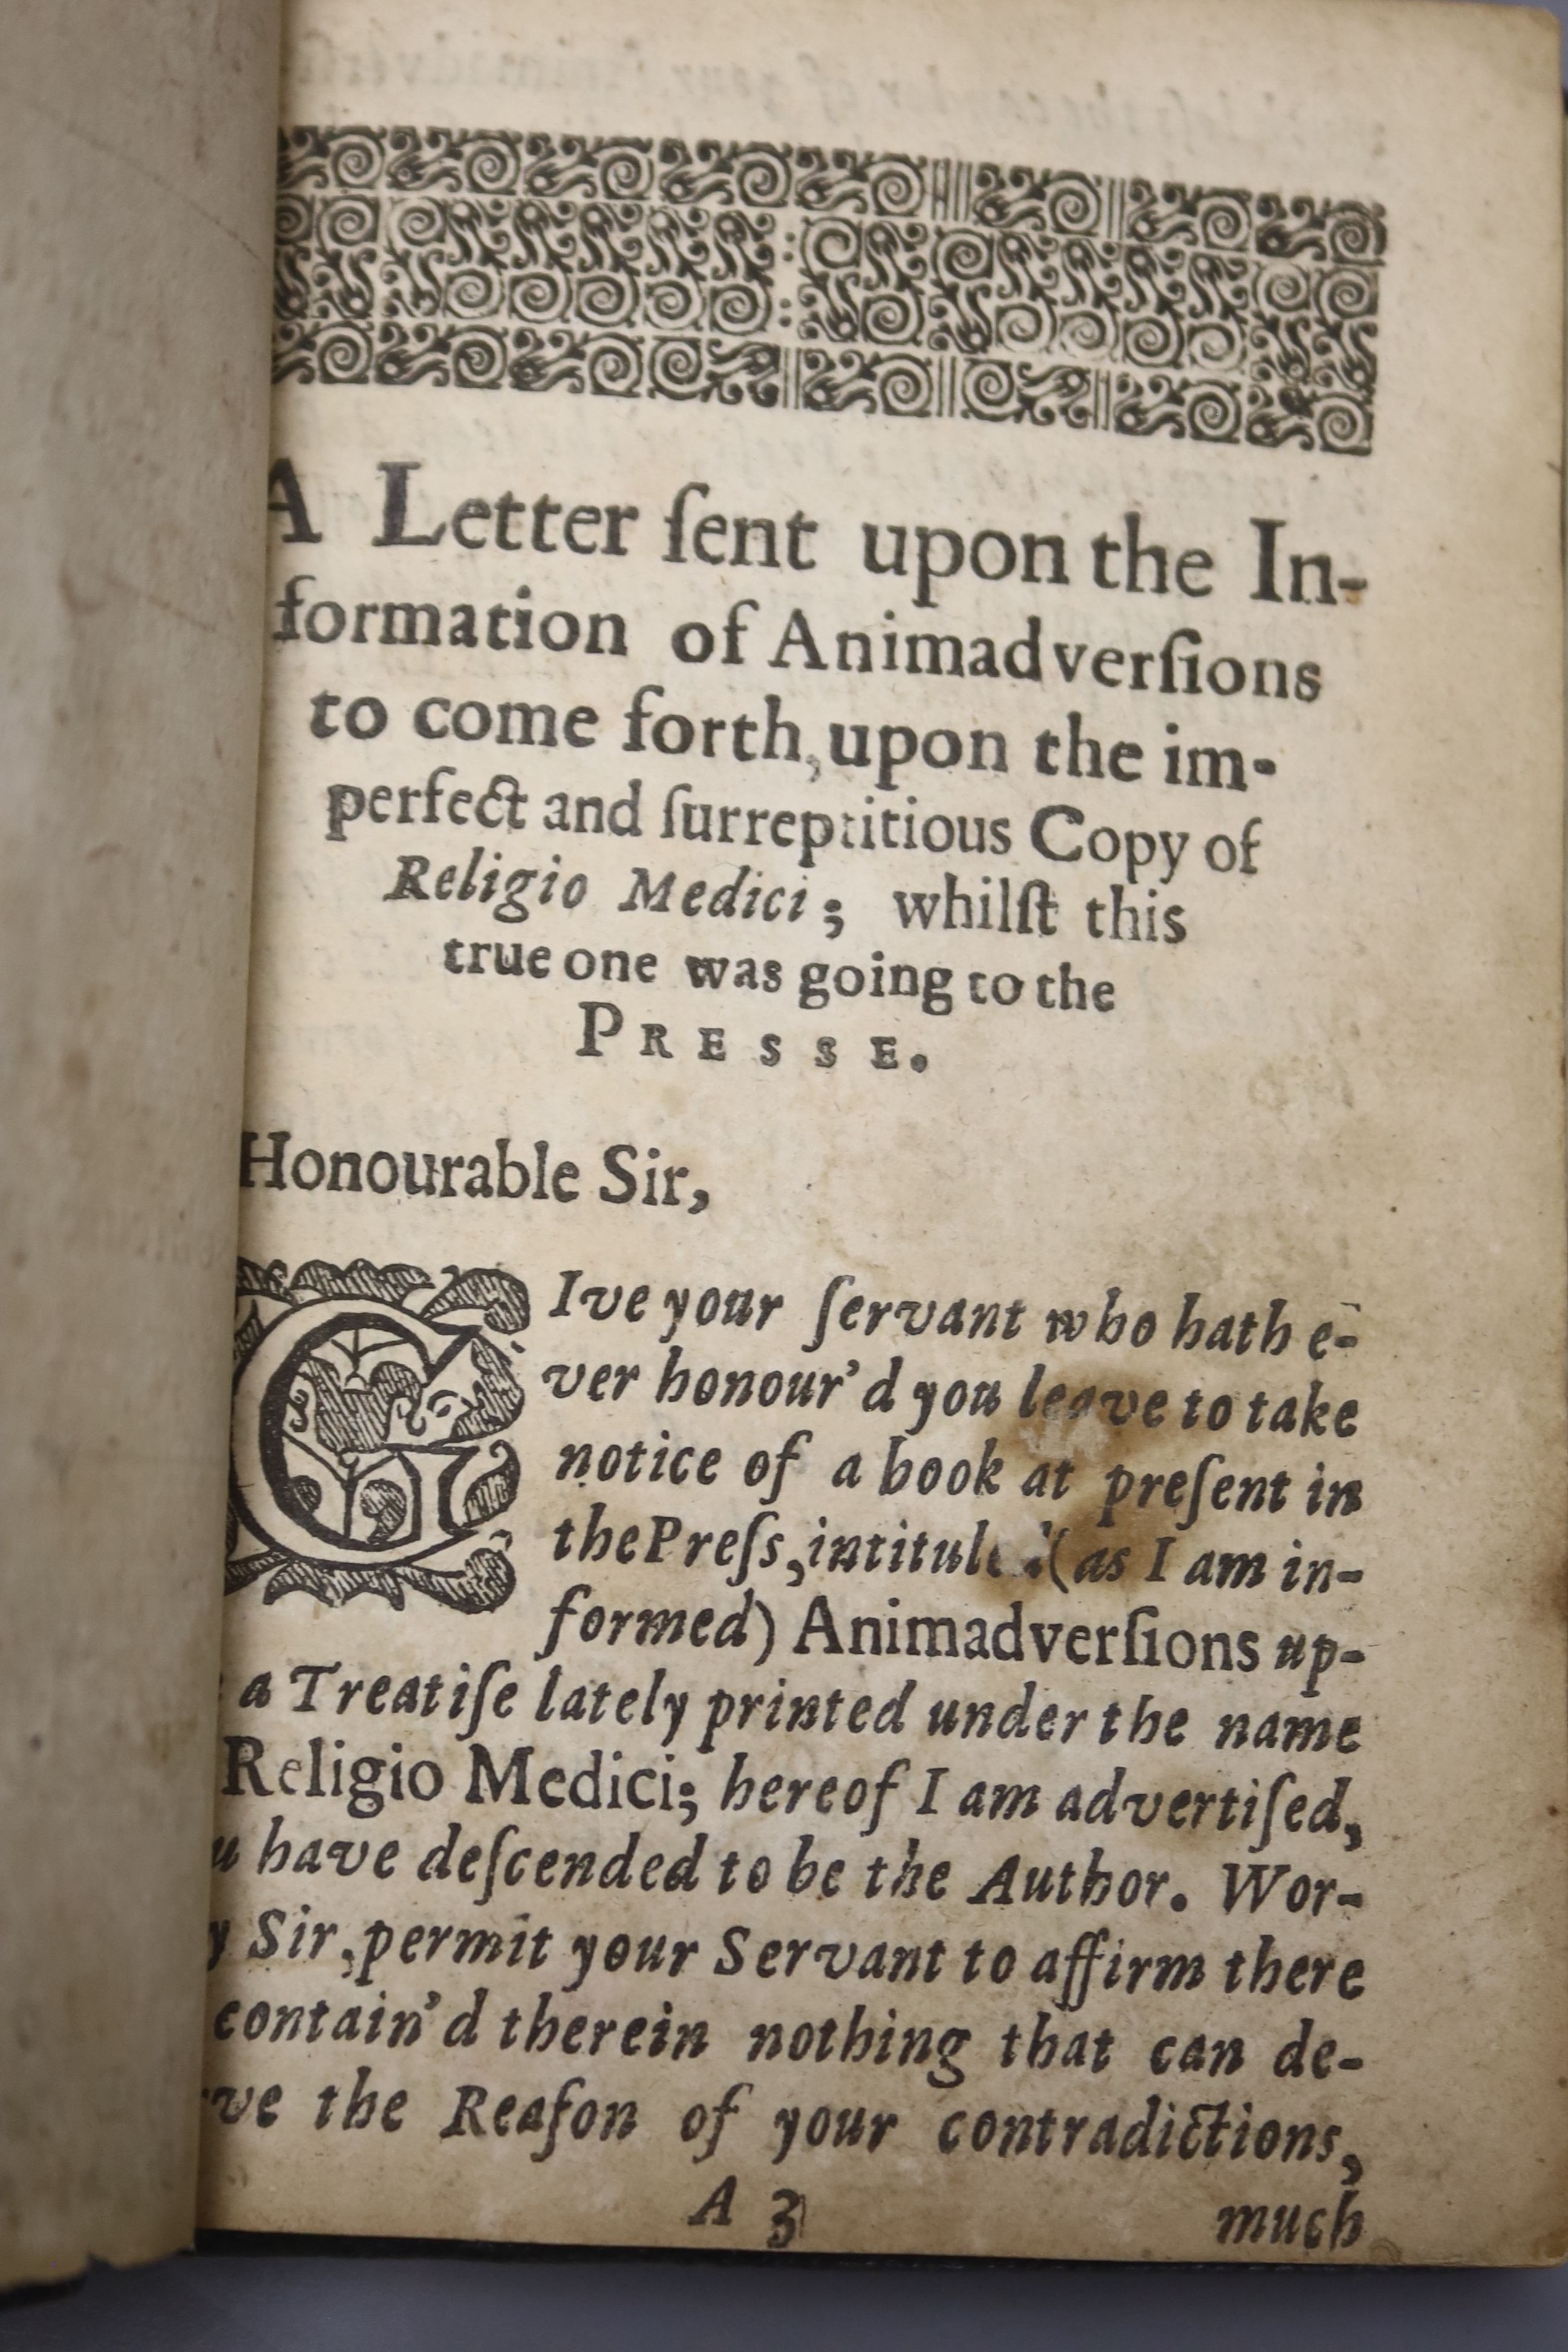 A Letter ſent upon the In-
formation of Animadverſions
to come forth, upon the im-
perfect and ſurreptitious Copy of
Religio Medici; whilſt this
true one was going to the
PRESSE.
Honourable Sir,
GIve your ſervant who hath e-
ver honour'd you leave to take
notice of a book at preſent in
the Preſs, intitule (as I am in-
formed) Animadverſions up-
a Treatiſe lately printed under the name
Religio Medici; hereof I am advertiſed,
u have deſcended to be the Author. Wor-
y Sir, permit your Servant to affirm there
contain'd therein nothing that can de-
ve the Reaſon of your contradictions,
A 3
much